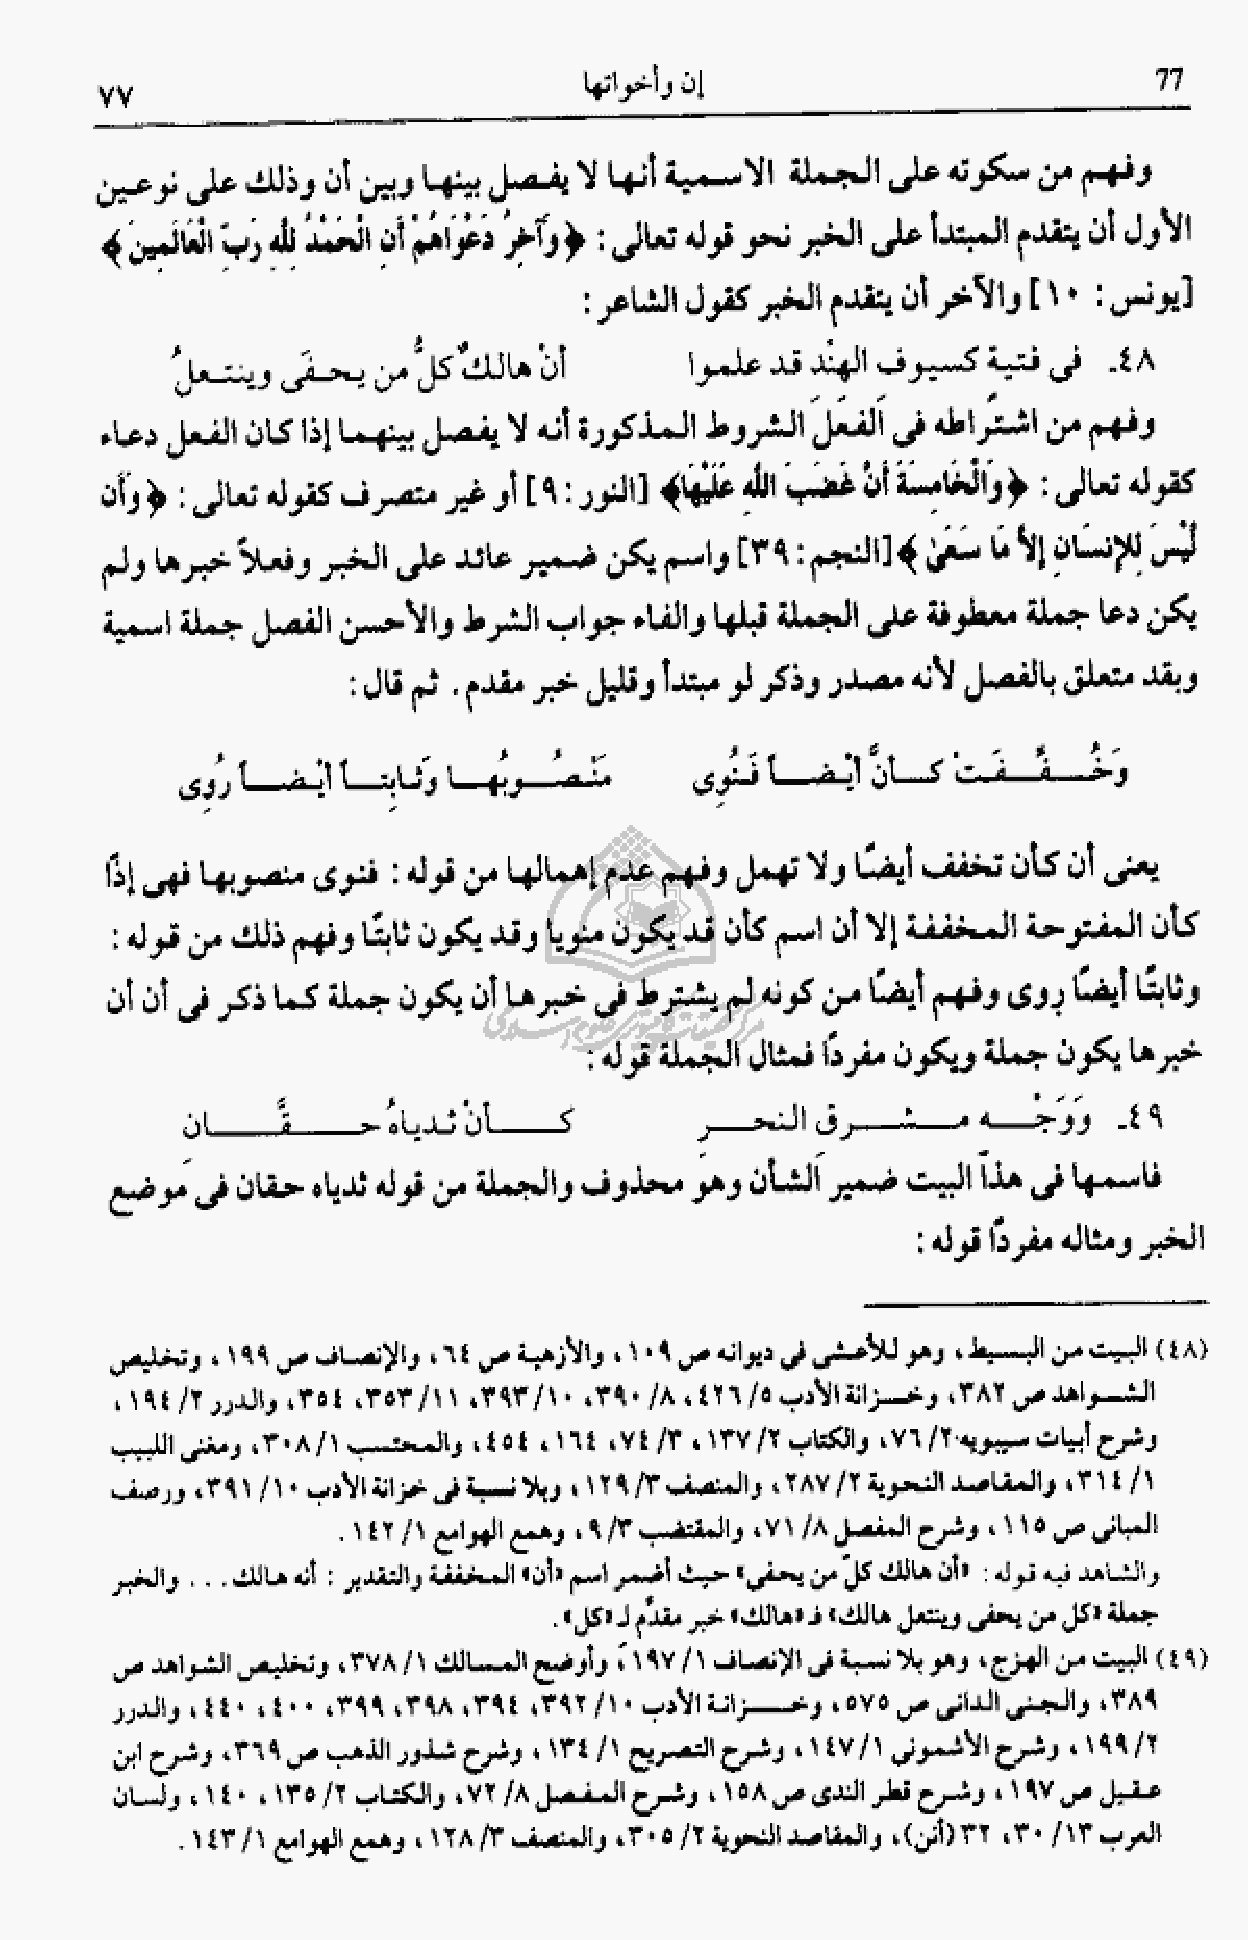 77
إن وأخواتها
٧٧
وفهم من سكوته على الجملة الاسمية أنها لا يفصل بينها وبين أن وذلك على نوعين
الأول أن يتقدم المبتدأ على الخبر نحو قوله تعالى: ﴿وَآخِرُ دَعْوَاهُمْ أَنِ الْحَمْدُ لِلَّهِ رَبِّ الْعَالَمِينَ﴾
[يونس: ١٠] والآخر أن يتقدم الخبر كقول الشاعر:
٤٨ـ فى فتية كسيوف الهنْد قد علموا أنْ هالكٌ كلُّ من يحفَى وينتعلُ
وفهم من اشتراطه فى الفعَل الشروط المذكورة أنه لا يفصل بينهما إذا كان الفعل دعاء
كقوله تعالى: ﴿وَالْخَامِسَةَ أَنْ غَضَبَ اللَّهِ عَلَيْهَا﴾ [النور: ٩] أو غير متصرف كقوله تعالى: ﴿وَأَن
لَّيْسَ لِلإِنسَانِ إِلاَّ مَا سَعَىٰ﴾ [النجم: ٣٩] واسم يكن ضمير عائد على الخبر وفعلاً خبرها ولم
يكن دعا جملة معطوفة على الجملة قبلها والفاء جواب الشرط والأحسن الفصل جملة اسمية
وبقد متعلق بالفصل لأنه مصدر وذكر لو مبتدأ وقليل خبر مقدم. ثم قال:
وَخُفِّفَتْ كَأَنَّ أَيْضاً فَنُوِى مَنْصُوبُهَا وَثَابِتاً أَيْضاً رُوِى
يعنى أن كأن تخفف أيضًا ولا تهمل وفهم عدم إهمالها من قوله: فنوى منصوبها فهى إذًا
كأن المفتوحة المخففة إلا أن اسم كأن قد يكون منويا وقد يكون ثابتًا وفهم ذلك من قوله:
وثابتًا أيضًا روى وفهم أيضًا من كونه لم يشترط فى خبرها أن يكون جملة كما ذكر فى أن أن
خبرها يكون جملة ويكون مفردًا فمثال الجملة قوله:
٤٩ـ وَوَجْه مشرق النحر كأنْ ثدياهُ حقَّان
فاسمها فى هذا البيت ضمير الشأن وهو محذوف والجملة من قوله ثدياه حقان فى موضع
الخبر ومثاله مفردًا قوله:
(٤٨) البيت من البسيط، وهو للأعشى فى ديوانه ص ١٠٩، والأزهية ص ٦٤، والإنصاف ص ١٩٩، وتخليص
الشواهد ص ٣٨٢، وخزانة الأدب ٥/ ٤٢٦، ٨/ ٣٩٠، ١٠/ ٣٩٣، ١١/ ٣٥٣، ٣٥٤، والدرر ٢/ ١٩٤،
وشرح أبيات سيبويه ٢/ ٧٦، والكتاب ٢/ ١٣٧، ٣/ ٧٤، ١٦٤، ٤٥٤، والمحتسب ١/ ٣٠٨، ومغنى اللبيب
١/ ٣١٤، والمقاصد النحوية ٢/ ٢٨٧، والمنصف ٣/ ١٢٩، وبلا نسبة فى خزانة الأدب ١٠/ ٣٩١، ورصف
المبانى ص ١١٥، وشرح المفصل ٨/ ٧١، والمقتضب ٣/ ٩، وهمع الهوامع ١/ ١٤٢.
والشاهد فيه قوله: «أن هالك كلّ من يحفى» حيث أضمر اسم «أن» المخففة والتقدير: أنه هالك... والخبر
جملة «كل من يحفى وينتعل هالك» فـ «هالك» خبر مقدّم لـ «كل».
(٤٩) البيت من الهزج، وهو بلا نسبة فى الإنصاف ١/ ١٩٧، وأوضح المسالك ١/ ٣٧٨، وتخليص الشواهد ص
٣٨٩، والجنى الدانى ص ٥٧٥، وخزانة الأدب ١٠/ ٣٩٢، ٣٩٤، ٣٩٨، ٣٩٩، ٤٠٠، ٤٤٠، والدرر
٢/ ١٩٩، وشرح الأشمونى ١/ ١٤٧، وشرح التصريح ١/ ١٣٤، وشرح شذور الذهب ص ٣٦٩، وشرح ابن
عقيل ص ١٩٧، وشرح قطر الندى ص ١٥٨، وشرح المفصل ٨/ ٧٢، والكتاب ٢/ ١٣٥، ١٤٠، ولسان
العرب ١٣/ ٣٠، ٣٢ (أنن)، والمقاصد النحوية ٢/ ٣٠٥، والمنصف ٣/ ١٢٨، وهمع الهوامع ١/ ١٤٣.